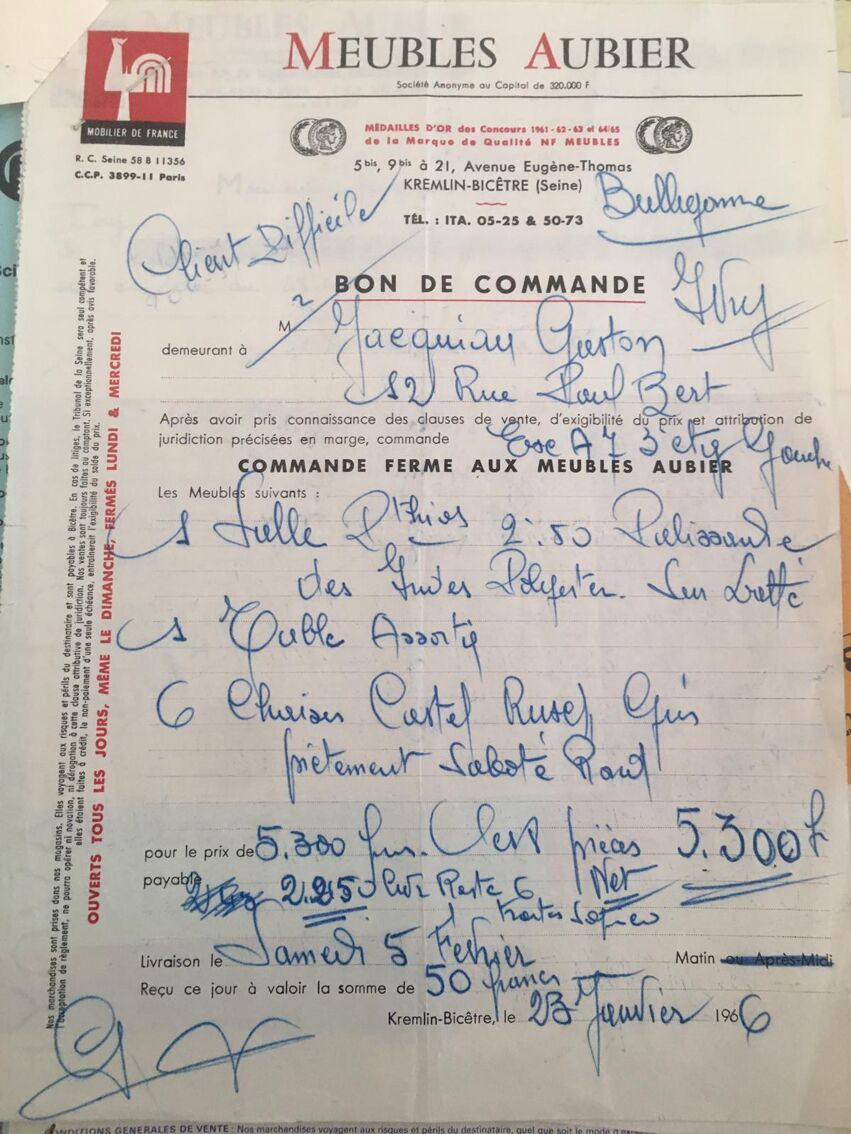 MEUBLES AUBIER
Société Anonyme au Capital de 320.000 F
MOBILIER DE FRANCE
R. C. Seine 58 B 11356
C.C.P. 3899-11 Paris
MÉDAILLES D'OR des Concours 1961-62-63 et 64/65
de la Marque de Qualité NF MEUBLES
5 bis, 9 bis à 21, Avenue Eugène-Thomas
KREMLIN-BICÊTRE (Seine)
TÉL. : ITA. 05-25 & 50-73
Client Difficile
BON DE COMMANDE
Ivry
M Jacquian Gaston
demeurant à
12 Rue Paul Bert
Après avoir pris connaissance des clauses de vente, d'exigibilité du prix et attribution de
juridiction précisées en marge, commande
Esc A 7 3 etg Gauche
COMMANDE FERME AUX MEUBLES AUBIER
Les Meubles suivants :
1 Salle 2.50 Palissandre
des Indes Polyester
1 Table Assortie
6 Chaises Castel Gris
piètement Saboté Rond
pour le prix de 5.300 frs. Les pièces 5.300 F
payable 2.250 Liv. Reste 6 Net
traites
Livraison le Samedi 5 Février Matin ou Après-Midi
Reçu ce jour à valoir la somme de 50 francs
Kremlin-Bicêtre, le 23 Janvier 1966
OUVERTS TOUS LES JOURS, MÊME LE DIMANCHE, FERMÉS LUNDI & MERCREDI
Nos marchandises sont prises dans nos magasins. Elles voyagent aux risques et périls du destinataire et sont payables à Bicêtre. En cas de litiges, le Tribunal de la Seine sera seul compétent et
l'acceptation de règlement, ne pourra opérer ni novation, ni dérogation à cette clause attributive de juridiction. Nos ventes sont toujours faites au comptant. Si exceptionnellement, après avis favorable,
elles étaient faites à crédit, le non-paiement d'une seule échéance, entraînerait l'exigibilité du solde du prix.
CONDITIONS GENERALES DE VENTE : Nos marchandises voyagent aux risques et périls du destinataire, quel que soit le mode